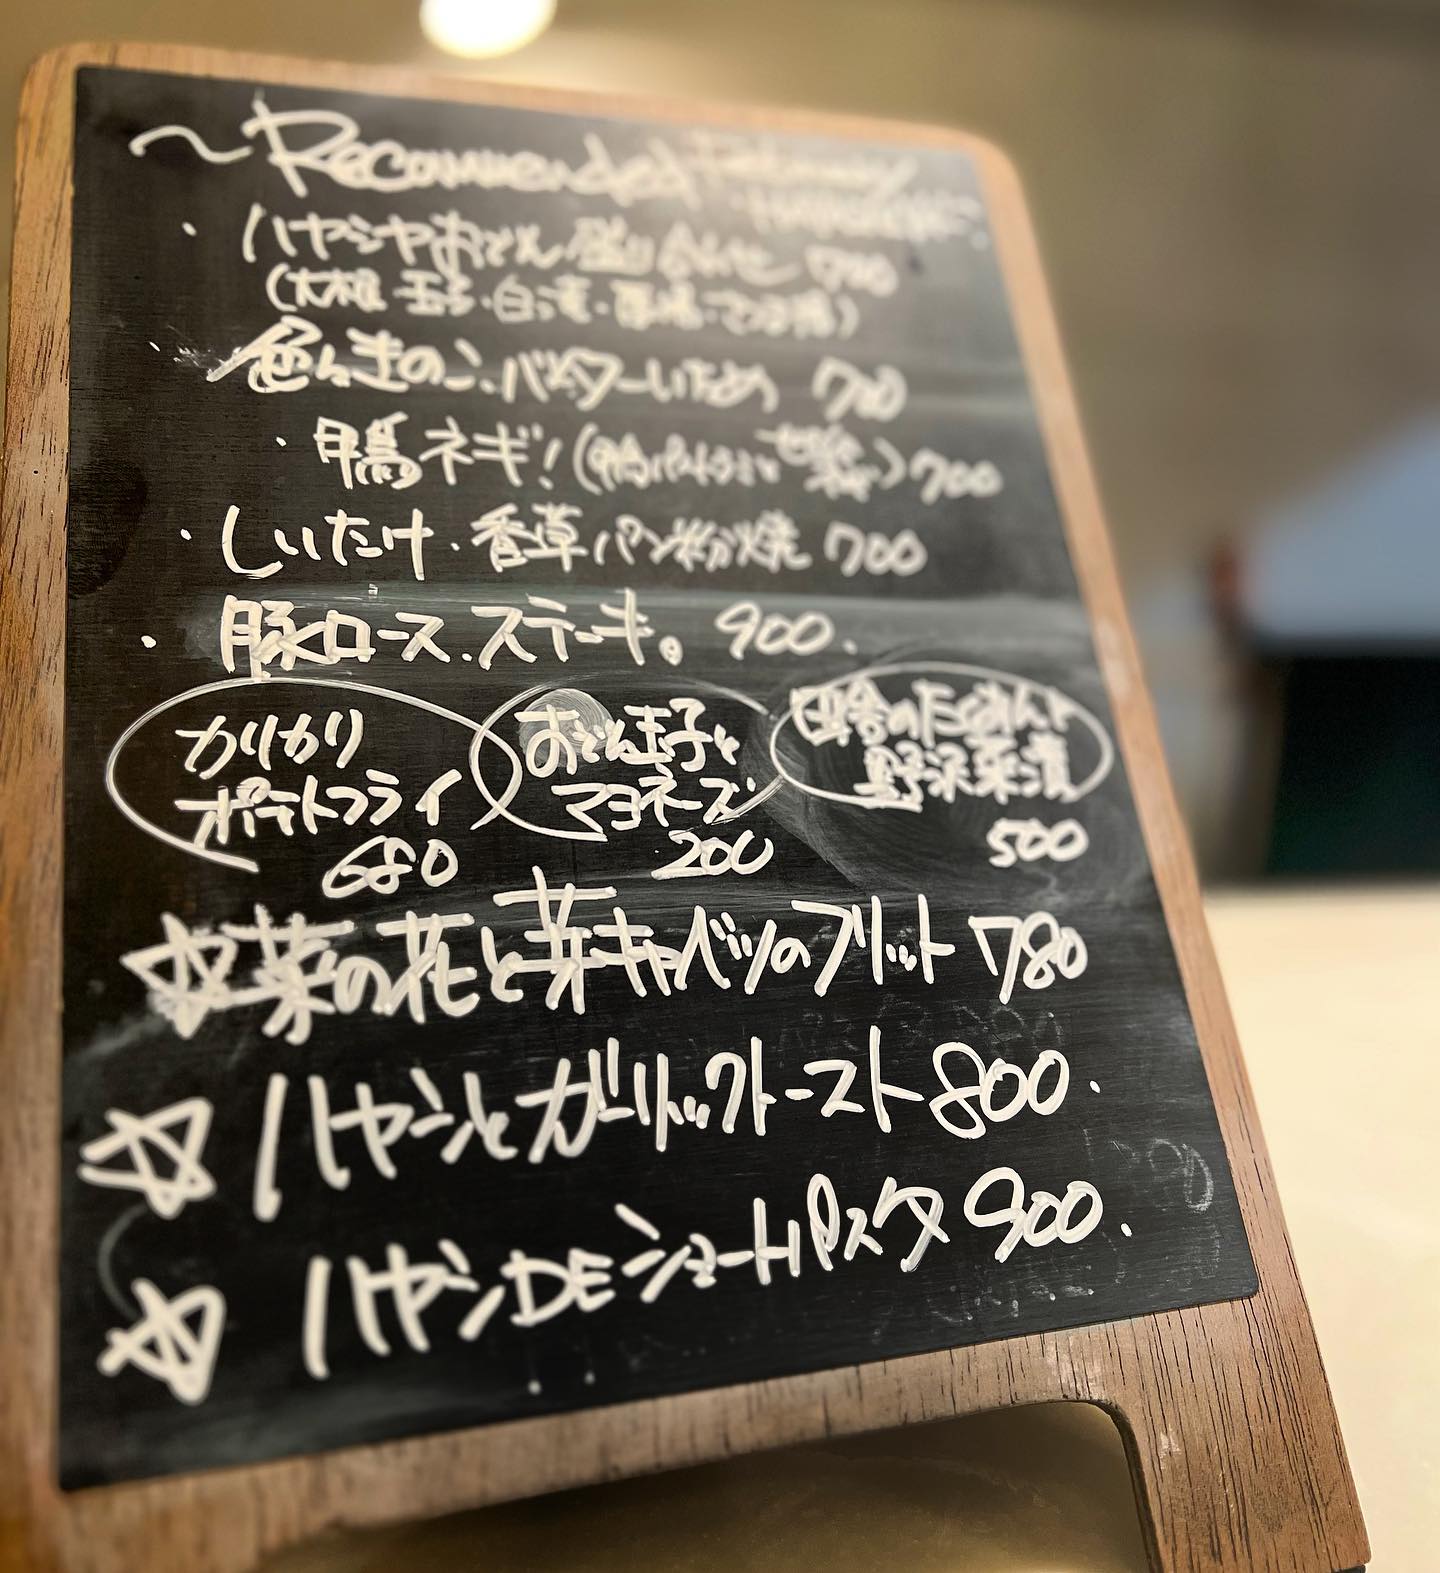 ~Recommended
・ハヤシヤおでん盛り合わせ 700
(大根・玉子・白滝・
・色んなきのこ、バターいため 700
・鴨ネギ!( 700
・しいたけ・香草パン粉焼 700
・豚ロース、ステーキ。 900.
カリカリ
ポテトフライ
680
おでん玉子と
マヨネーズ
200
田舎のたくあんと
野沢菜漬
500
☆菜の花と芽キャベツのフリット 780
☆ハヤシとガーリックトースト 800.
☆ハヤシDEショートパスタ 900.